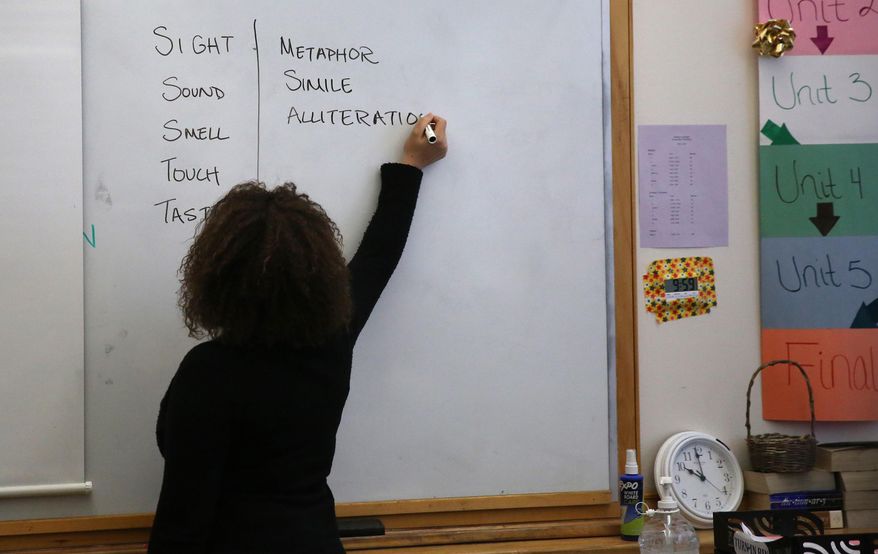 SIGHT
SOUND
SMELL
TOUCH
METAPHOR
SIMILE
ALLITERATIO
9:59
Unit 2
Unit 3
Unit 4
Unit 5
Final
EXPO
WHITE BOARD